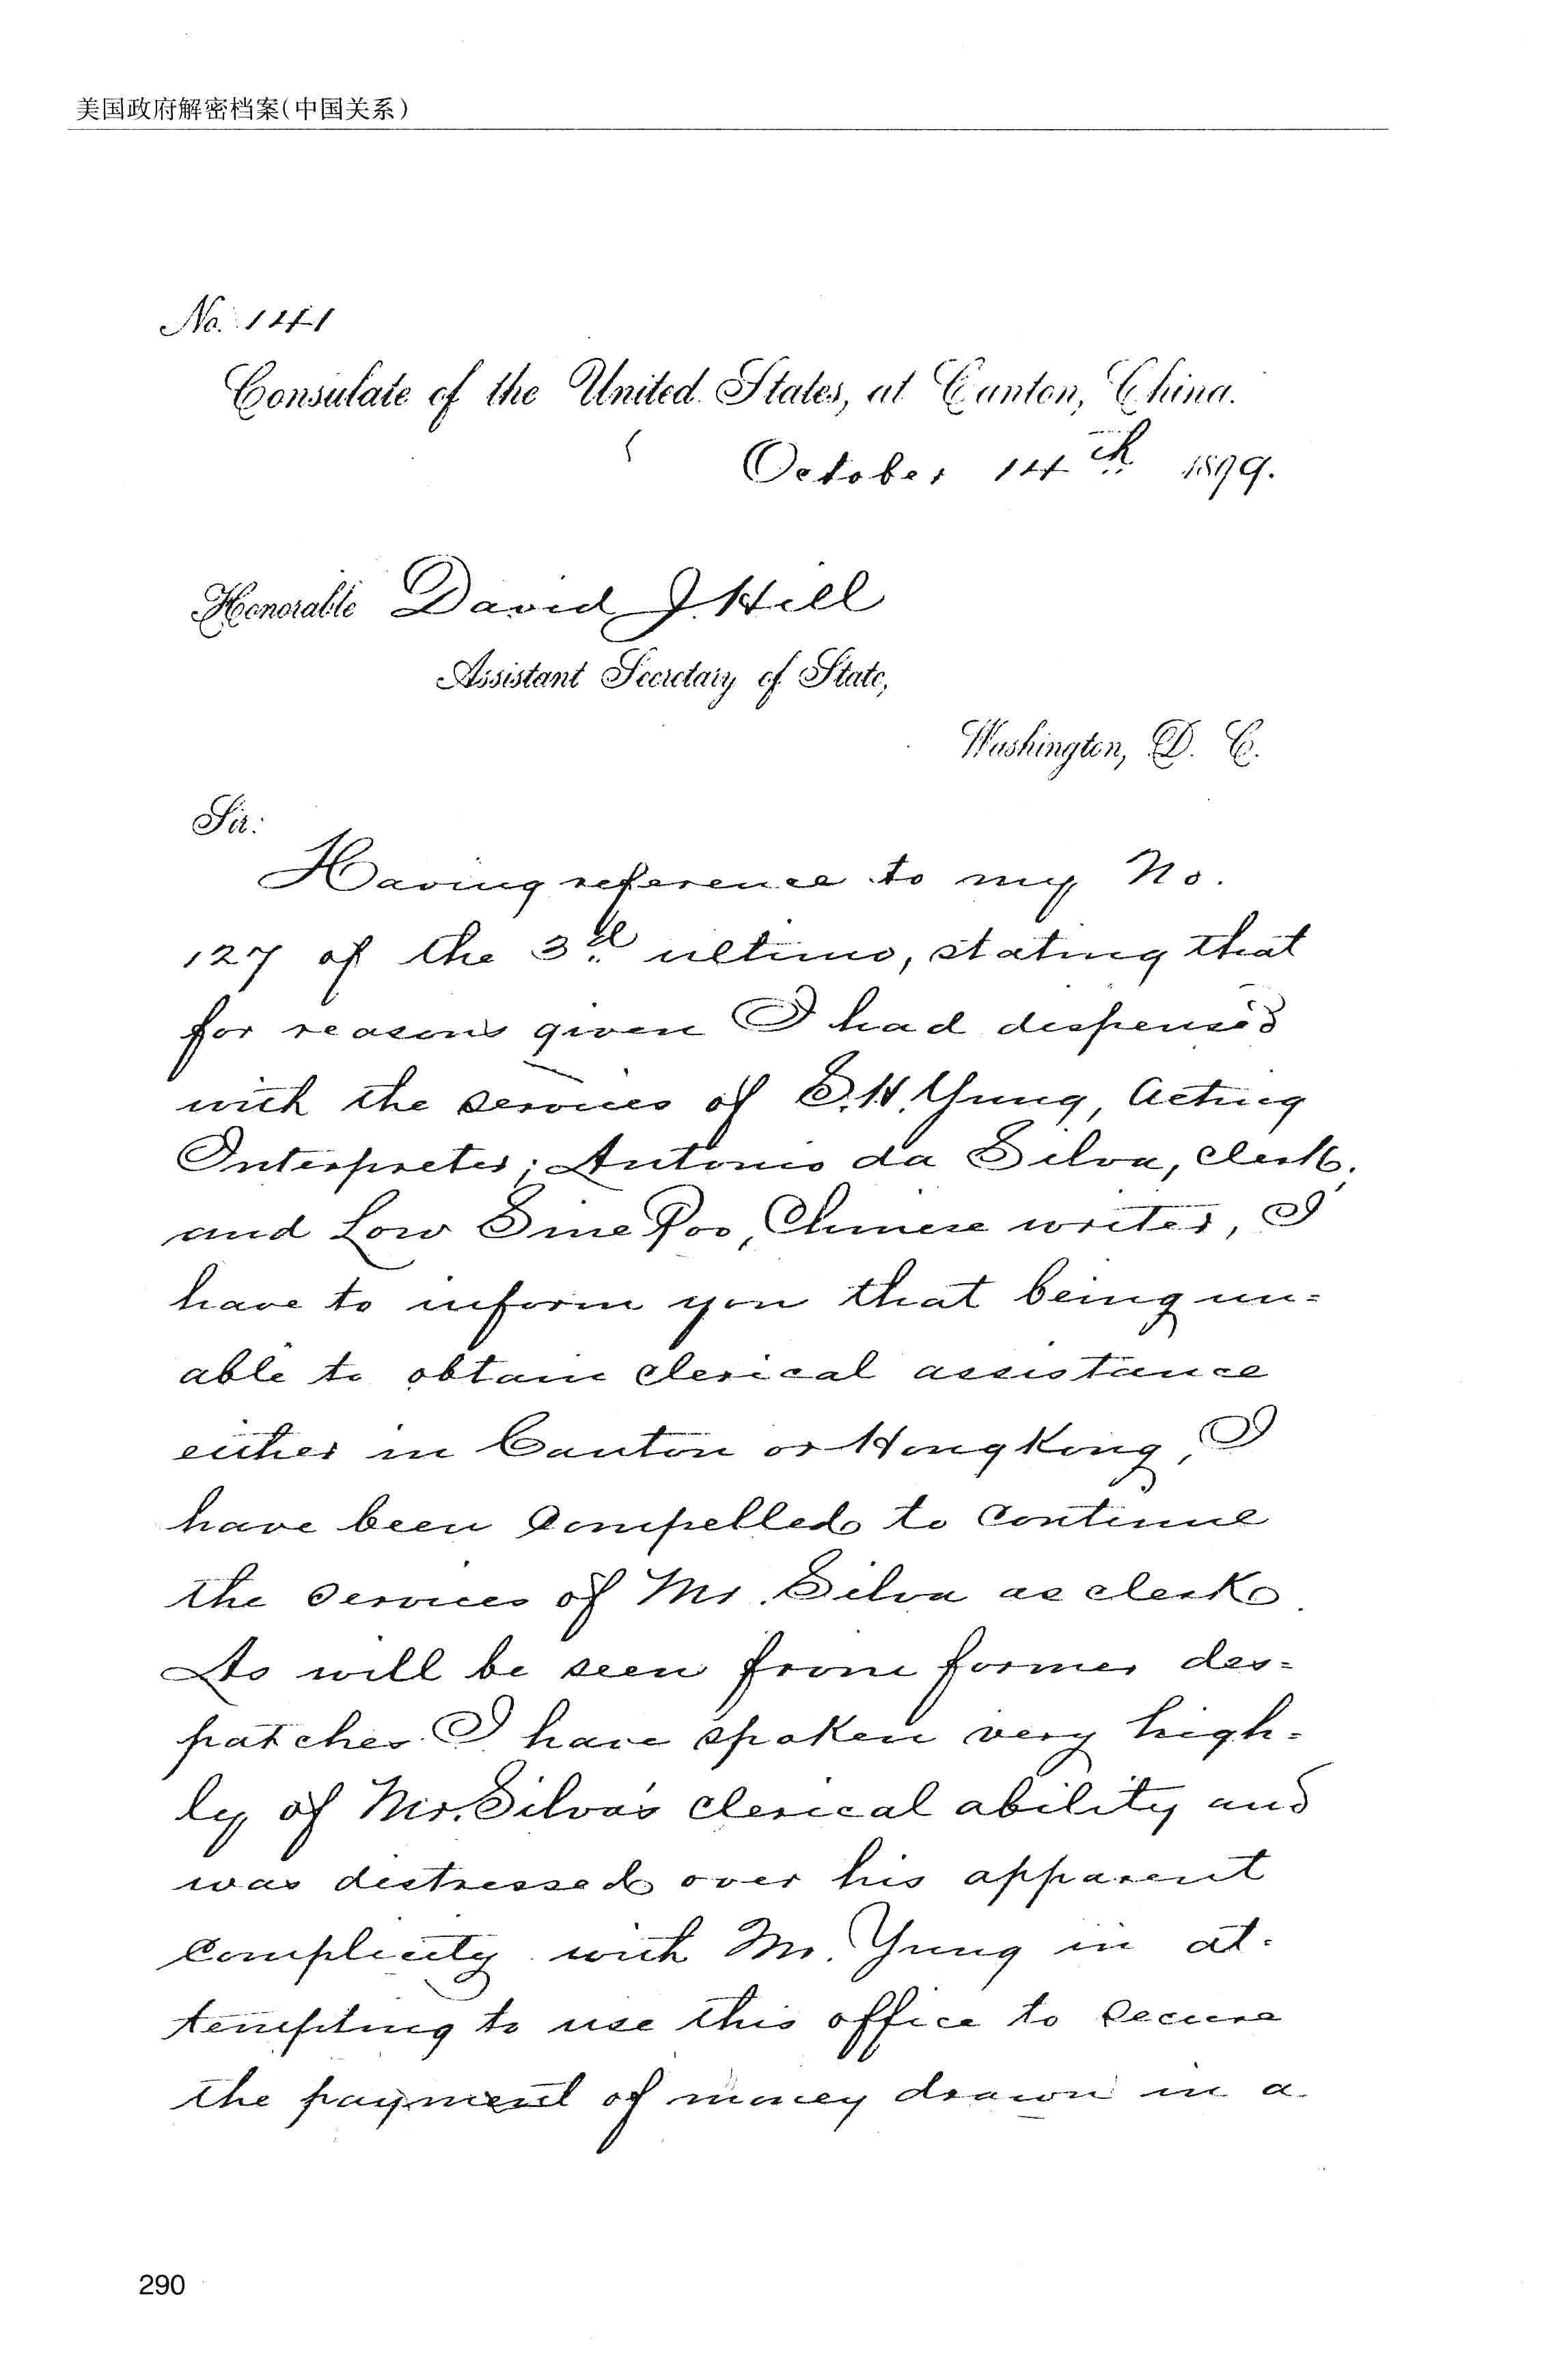 美国政府解密档案(中国关系)
No. 141
Consulate of the United States, at Canton, China.
October 14th 1899.
Honorable David J. Hill
Assistant Secretary of State,
Washington, D. C.
Sir:
Having reference to my No.
127 of the 3d ultimo, stating that
for reasons given I had dispensed
with the services of S.H. Yung, Acting
Interpreter; Antonio da Silva, clerk;
and Low Sine Poo, Chinese writer, I
have to inform you that being un=
able to obtain clerical assistance
either in Canton or Hong Kong, I
have been compelled to continue
the services of Mr. Silva as clerk.
As will be seen from former des=
patches I have spoken very high=
ly of Mr. Silva's clerical ability and
was distressed over his apparent
complicity with Mr. Yung in at-
tempting to use this office to secure
the payment of money drawn in a
290